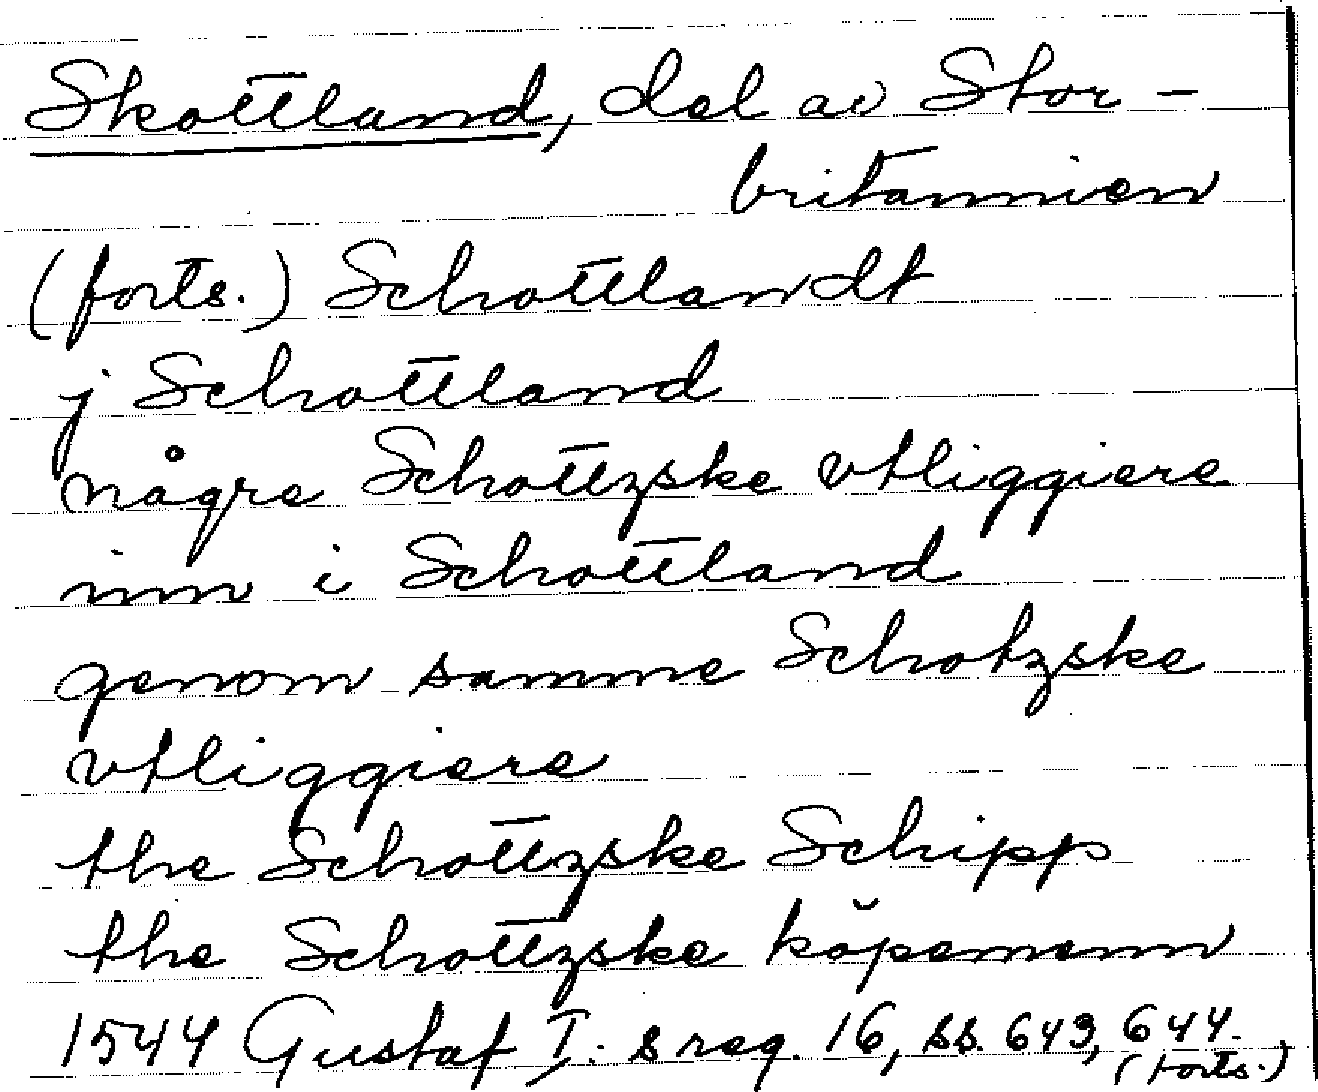 Skottland, del av Stor-
britannien
(forts.) Schottlandt
j Schottland
någre Schottzske vtliggiere
inn i Schottland
genom samme Schotzske
vtliggiere
the Schottzske Schipp
the Schottzske köpemenn
1544 Gustaf I:s reg. 16, ss. 643, 644.
(forts.)